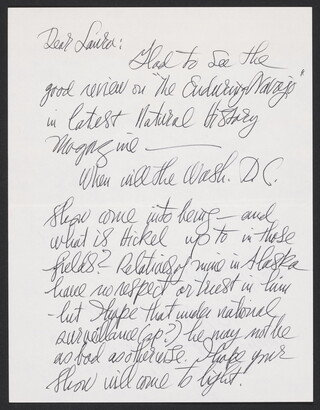 Dear Laura:
Glad to see the
good review on "The Enduring Navajo"
in latest Natural History
Magazine —
When will the Wash. D.C.
Show come into being — and
what is Hickel up to in those
fields? — Relatives of mine in Alaska
have no respect or trust in him
— but I hope that under national
surveillance (sp?) he may not be
as bad as otherwise. I hope your
Show will come to light.